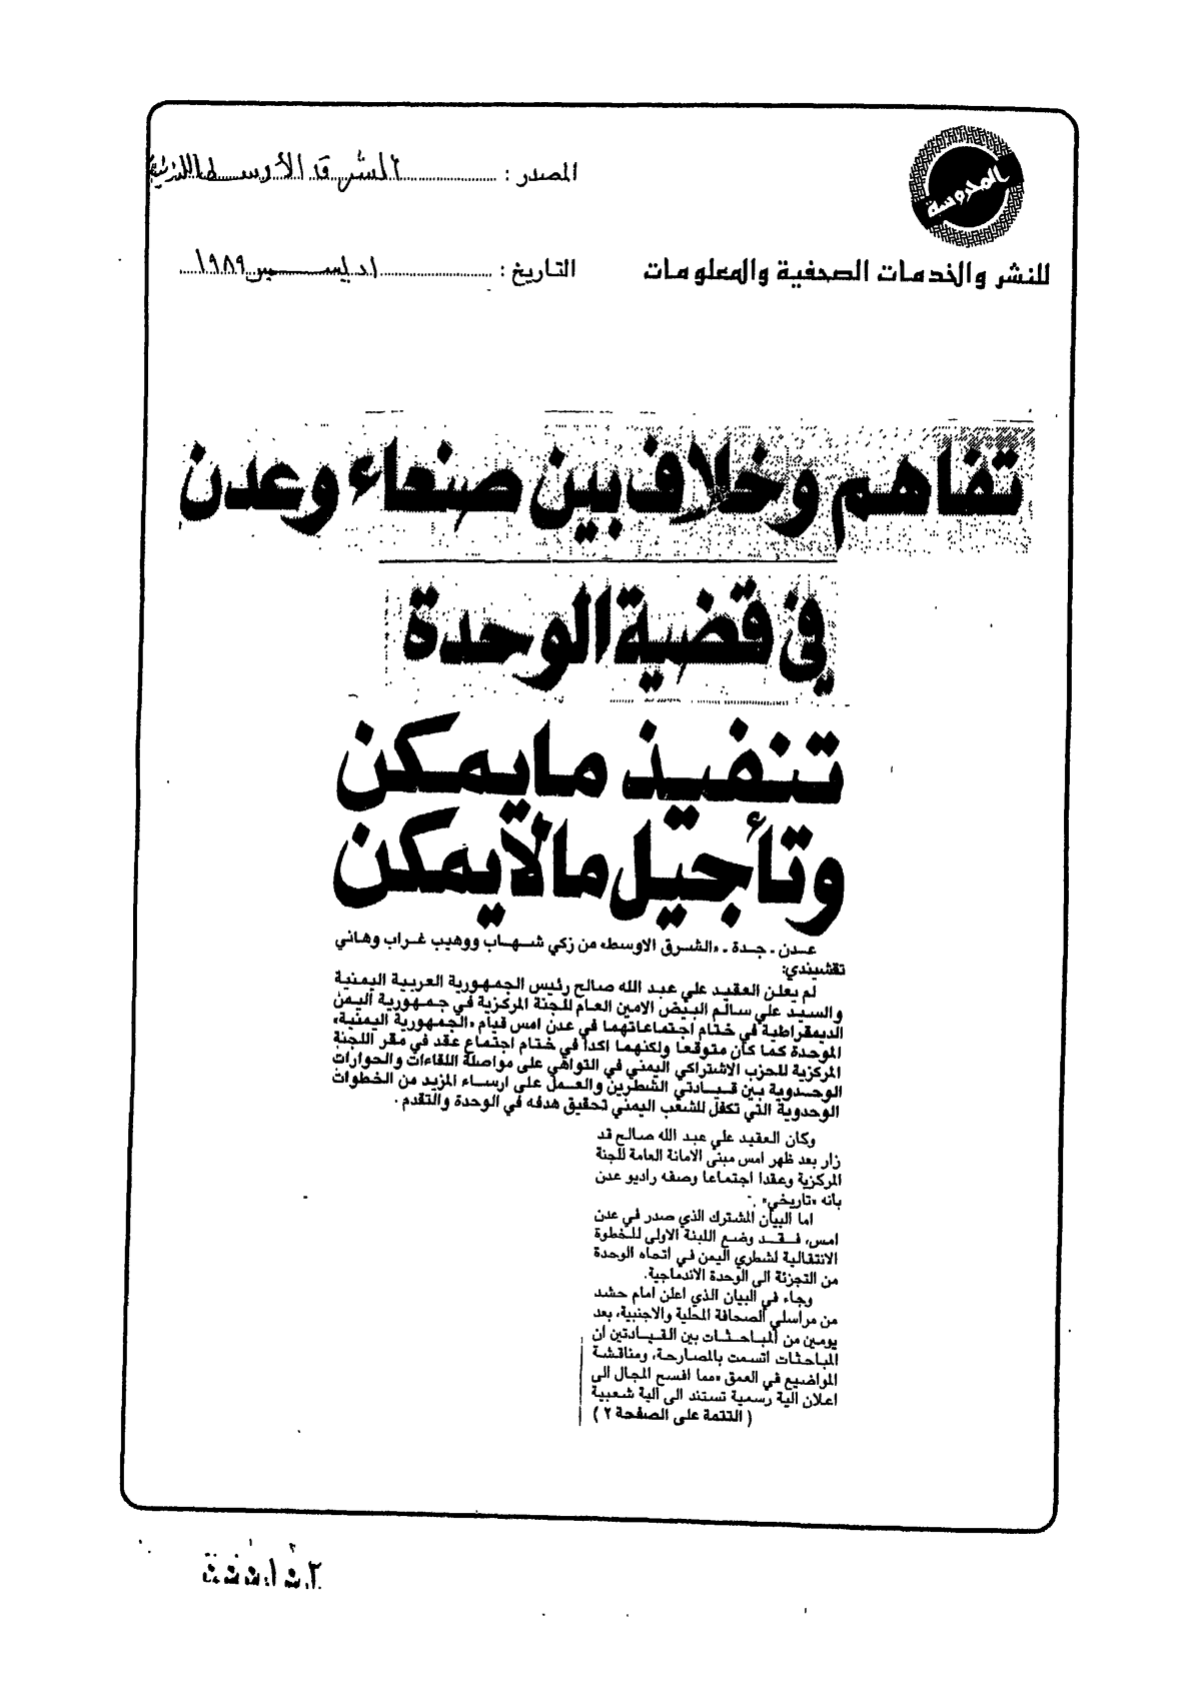 المحروسة
للنشر والخدمات الصحفية والمعلومات
المصدر : الشرق الأوسط اللندنية
التاريخ : ١ ديسمبر ١٩٨٩
تفاهم وخلاف بين صنعاء وعدن
في قضية الوحدة
تنفيذ ما يمكن
وتأجيل ما لا يمكن
عدن - جدة - «الشرق الاوسط» من زكي شهاب ووهيب غراب وهاني
نقشبندي:
لم يعلن العقيد علي عبد الله صالح رئيس الجمهورية العربية اليمنية
والسيد علي سالم البيض الامين العام للجنة المركزية في جمهورية اليمن
الديمقراطية في ختام اجتماعاتهما في عدن امس قيام «الجمهورية اليمنية»
الموحدة كما كان متوقعا ولكنهما اكدا في ختام اجتماع عقد في مقر اللجنة
المركزية للحزب الاشتراكي اليمني في التواهي على مواصلة اللقاءات والحوارات
الوحدوية بين قيادتي الشطرين والعمل على ارساء المزيد من الخطوات
الوحدوية التي تكفل للشعب اليمني تحقيق هدفه في الوحدة والتقدم .
وكان العقيد علي عبد الله صالح قد
زار بعد ظهر امس مبنى الامانة العامة للجنة
المركزية وعقدا اجتماعا وصفه راديو عدن
بانه «تاريخي» .
اما البيان المشترك الذي صدر في عدن
امس، فقد وضع اللبنة الاولى للخطوة
الانتقالية لشطري اليمن في اتجاه الوحدة
من التجزئة الى الوحدة الاندماجية.
وجاء في البيان الذي اعلن امام حشد
من مراسلي الصحافة المحلية والاجنبية، بعد
يومين من المباحثات بين القيادتين ان
المباحثات اتسمت بالمصارحة، ومناقشة
المواضيع في العمق «مما افسح المجال الى
اعلان الية رسمية تستند الى الية شعبية
( التتمة على الصفحة ٢ )